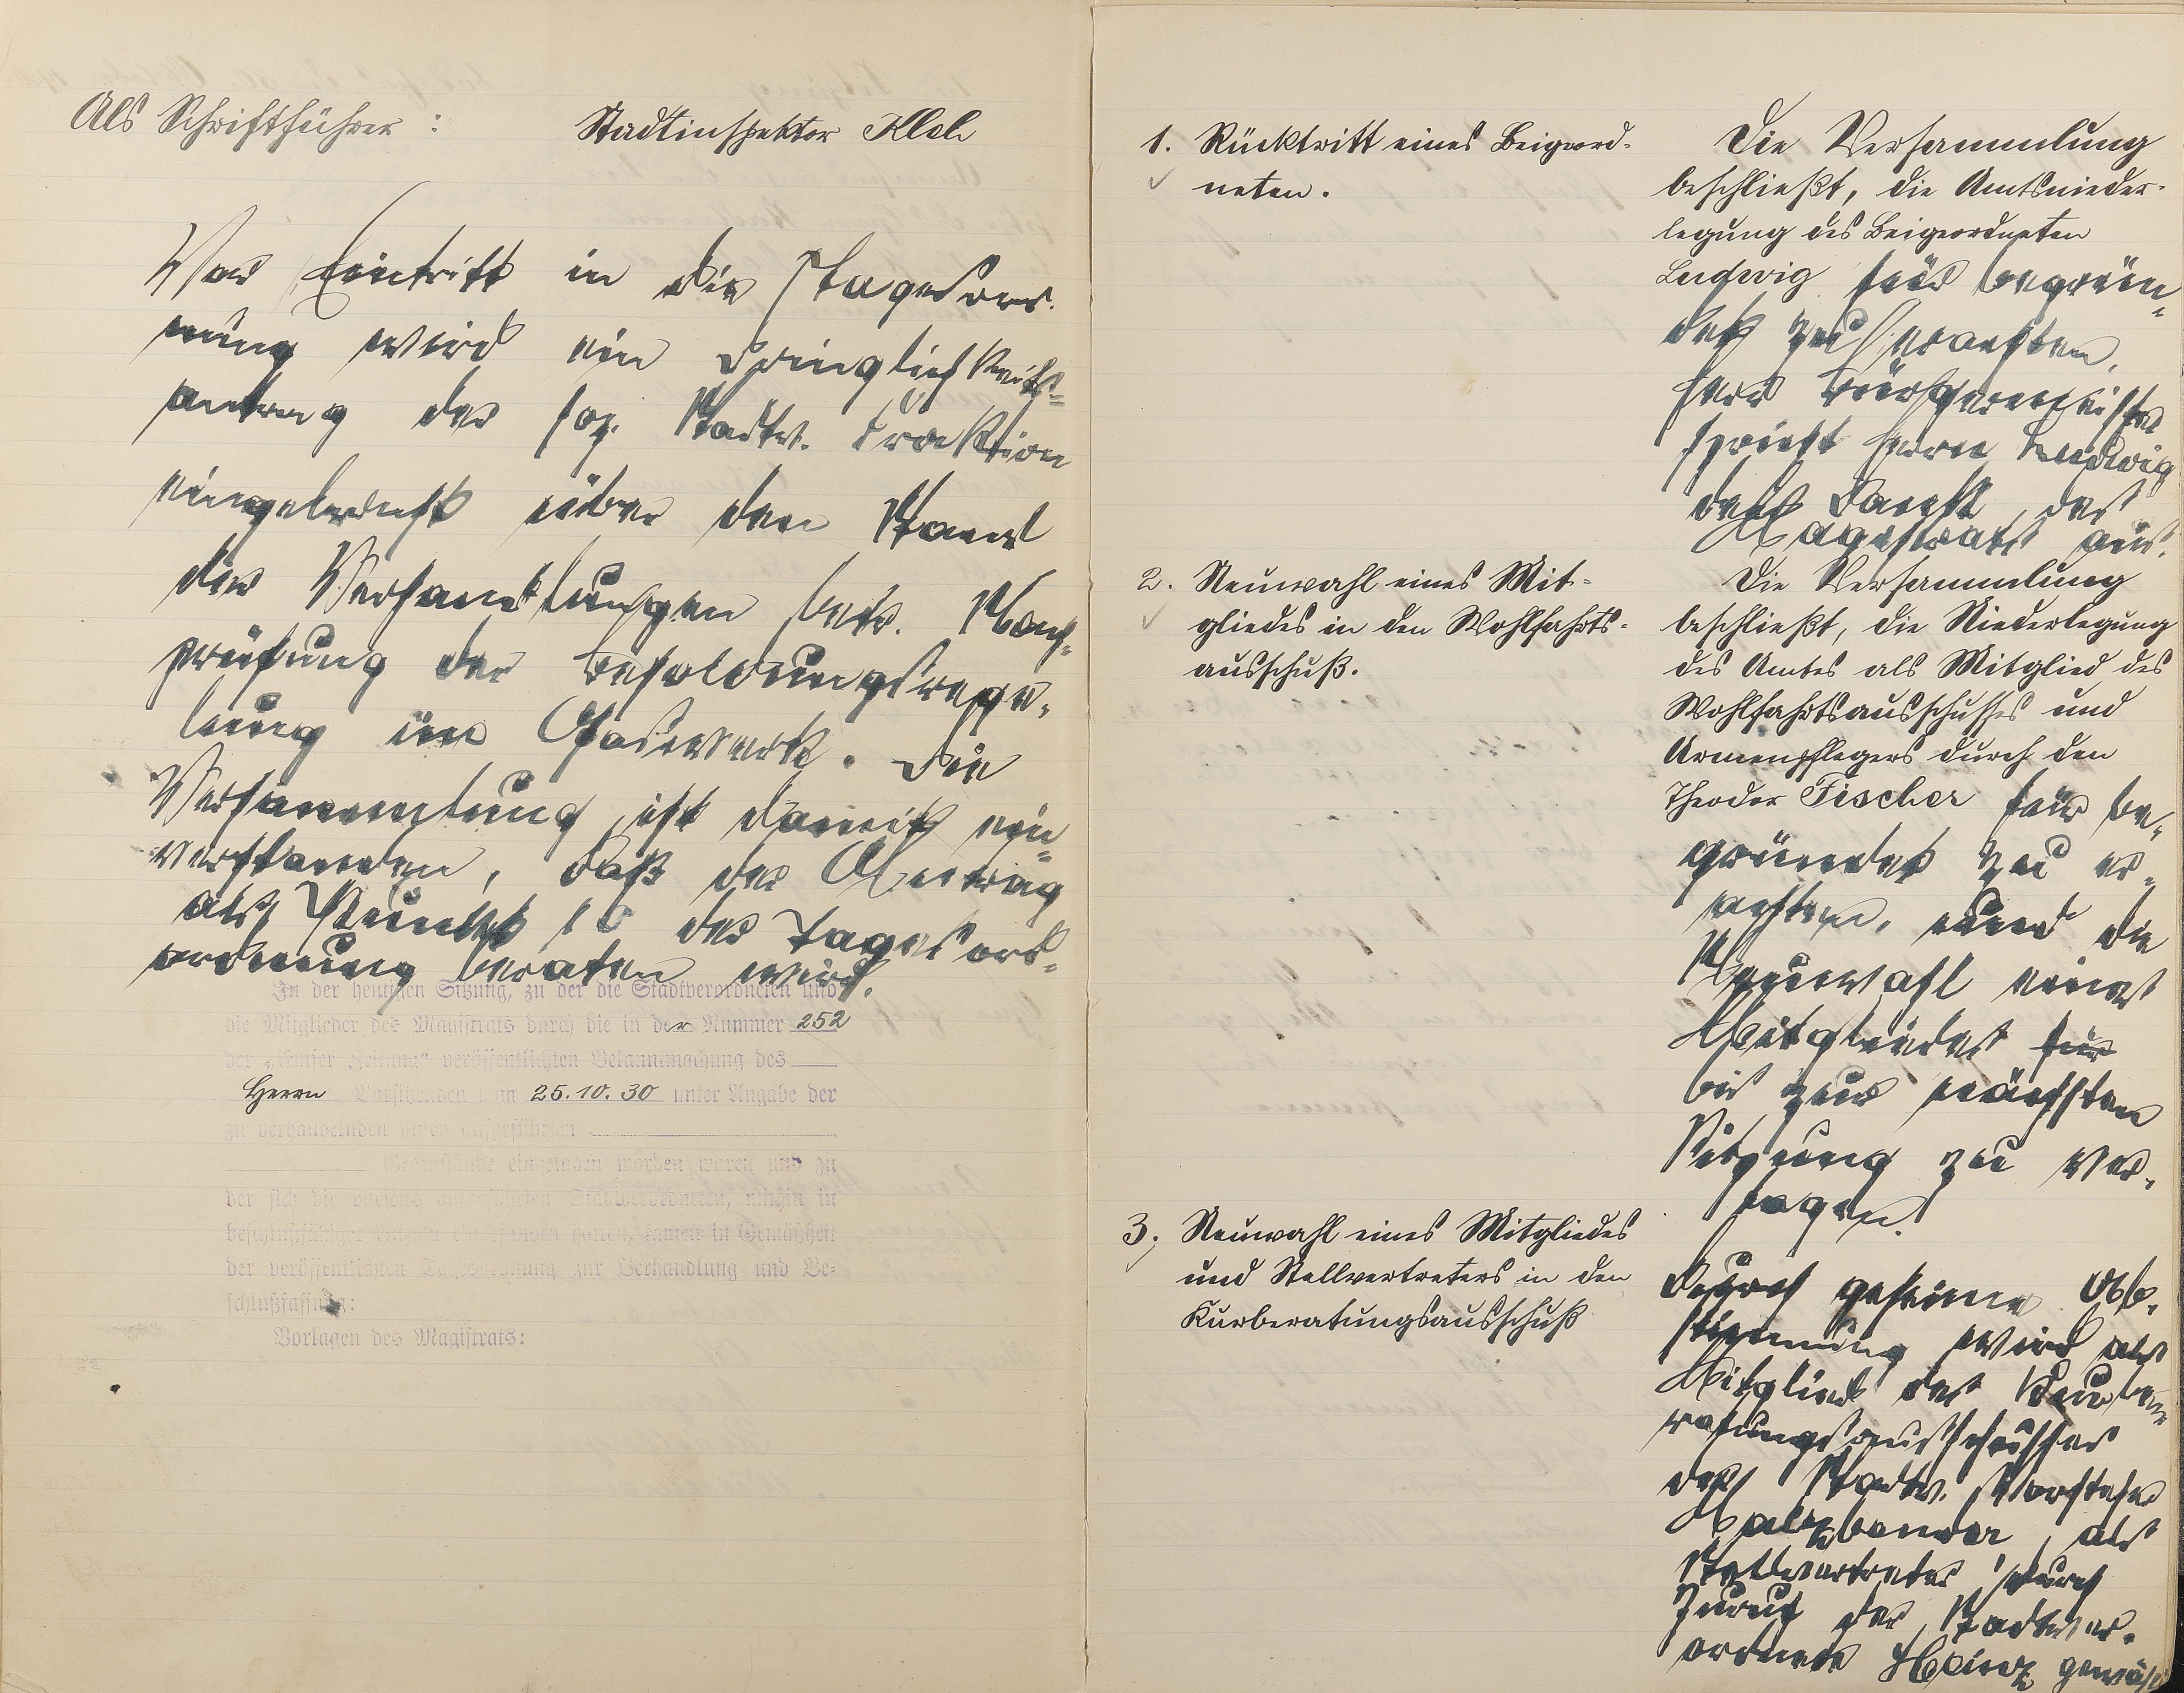 Als Schriftführer : Stadtinspektor Kleb
Vor Eintritt in die Tagesord-
nung wird ein Dringlichkeits-
antrag der soz. Stadtv. Fraktion
eingebracht über den Stand
der Verhandlungen betr. Nach-
prüfung der Besoldungsrege-
lung im Gaswerk. Die
Versammlung ist damit ein-
verstanden, daß der Antrag
als Punkt 10 der Tagesord-
ordnung beraten wird.
In der heutigen Sitzung, zu der die Stadtverordneten und
die Mitglieder des Magistrats durch die in der Nummer 252
der „Emser Zeitung" veröffentlichten Bekanntmachung des
Herrn Vorsitzenden vom 25.10.30 unter Angabe der
zu verhandelnden unten aufgeführten
Gegenstände eingeladen worden waren und zu
der sich die Stadtverordneten, mithin in
beschlußfähiger eingefunden hatten, kamen in Gemäßheit
der veröffentlichten Tagesordnung zur Verhandlung und Be-
schlußfassung:
Vorlagen des Magistrats:
1. Rücktritt eines Beigeord-
neten.
Die Versammlung
beschließt, die Amtsnieder-
legung des Beigeordneten
Ludwig für begrün-
det zu erachten.
Herr Bürgermeister
spricht Herrn Ludwig
den Dank des
Magistrats aus.
2. Neuwahl eines Mit-
gliedes in den Wohlfahrts-
ausschuß.
Die Versammlung
beschließt, die Niederlegung
des Amtes als Mitglied des
Wohlfahrtsausschusses und
Armenpflegers durch den
Theodor Fischer für be-
gründet zu er-
achten, und die
Neuwahl eines
Mitgliedes für
bis zur nächsten
Sitzung zu ver-
tagen.
3. Neuwahl eines Mitgliedes
und Stellvertreters in den
Kurberatungsausschuß
Durch geheime Ab-
stimmung wird als
Mitglied des Kurbe-
ratungsausschusses
der Stadtv. Vorsteher
als
Stellvertreter durch
Zuruf der Stadtver-
ordnete Heinz gewählt